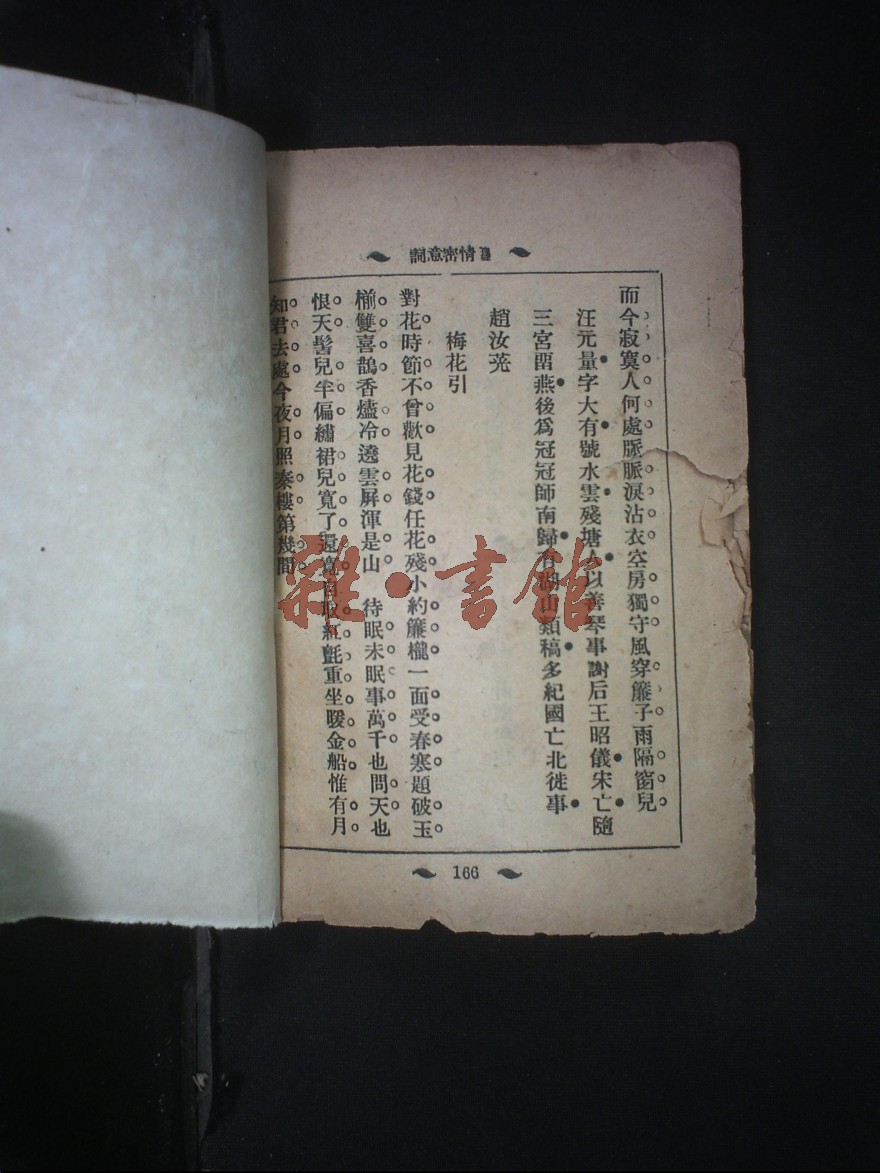 情密意詞
而今寂寞人何處脈脈淚沾衣空房獨守風穿簾子雨隔窗兒
汪元量字大有號水雲殘塘人以善琴事謝后王昭儀宋亡隨
三宮留燕後爲冠冠師南歸有湖山類稿多紀國亡北徙事
趙汝茪
梅花引
對花時節不曾歡見花錢任花殘小約簾櫳一面受春寒題破玉
槅雙喜鵲香燼冷遶雲屏渾是山 待眠未眠事萬千也問天也
恨天髻兒半偏繡裙兒寬了還寬自取紅氈重坐暖金船惟有月
知君去處今夜月照秦樓第幾間
166
雜·書館